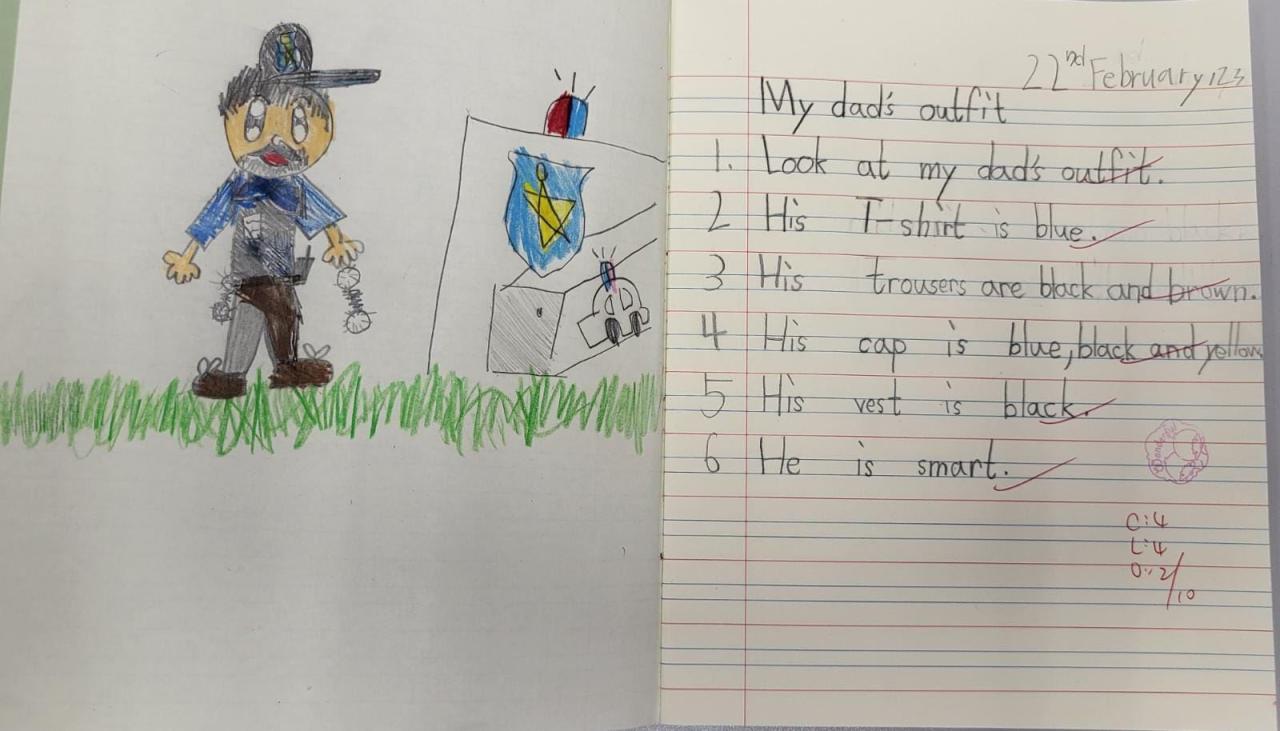 22nd February, 23
My dad's outfit
1. Look at my dad's outfit.
2 His T-shirt is blue.
3 His trousers are black and brown.
4 His cap is blue, black and yellow
5 His vest is black.
6 He is smart.
Wonderful
C:4
L:4
O:2/10